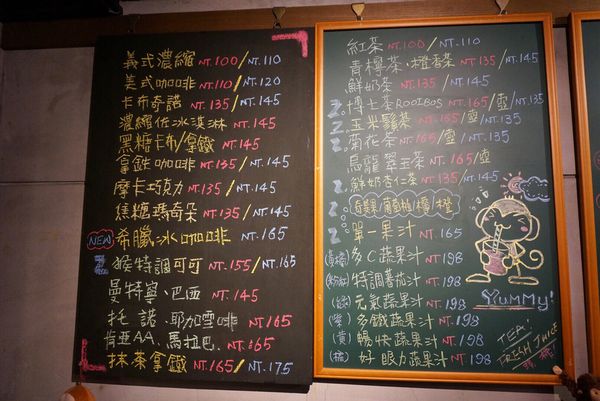 義式濃縮 NT.100/NT.110
美式咖啡 NT.110/NT.120
卡布奇諾 NT.135/NT.145
濃縮佐冰淇淋 NT.145
黑糖卡布/拿鐵 NT.145
拿鐵咖啡 NT.135/NT.145
摩卡巧克力 NT.135/NT.145
焦糖瑪奇朵 NT.135/NT.145
NEW 希臘冰咖啡 NT.165
猴特調可可 NT.155/NT.165
曼特寧、巴西 NT.145
托諾、耶加雪啡 NT.165
肯亞AA、馬拉巴 NT.165
抹茶拿鐵 NT.165/NT.175
紅茶 NT.100/NT.110
青檸茶·橙香茶 NT.135/NT.145
鮮奶茶 NT.135/NT.145
博士茶ROOIBOS NT.165/壺/NT.135
玉米鬚茶 NT.165/壺/NT.135
菊花茶 NT.165/壺/NT.135
烏龍翠玉茶 NT.165/壺
鮮奶杏仁茶 NT.135/NT.145
奇異果/葡萄柚/檸/橙
單一果汁 NT.165
(黃橘) 多C蔬果汁 NT.198
特調蕃茄汁 NT.198
元氣蔬果汁 NT.198
(紫) 多鐵蔬果汁 NT.198
(黃) 暢快蔬果汁 NT.198
(橘) 好眼力蔬果汁 NT.198
YuMMy!
TEA.
FRESH JUICE